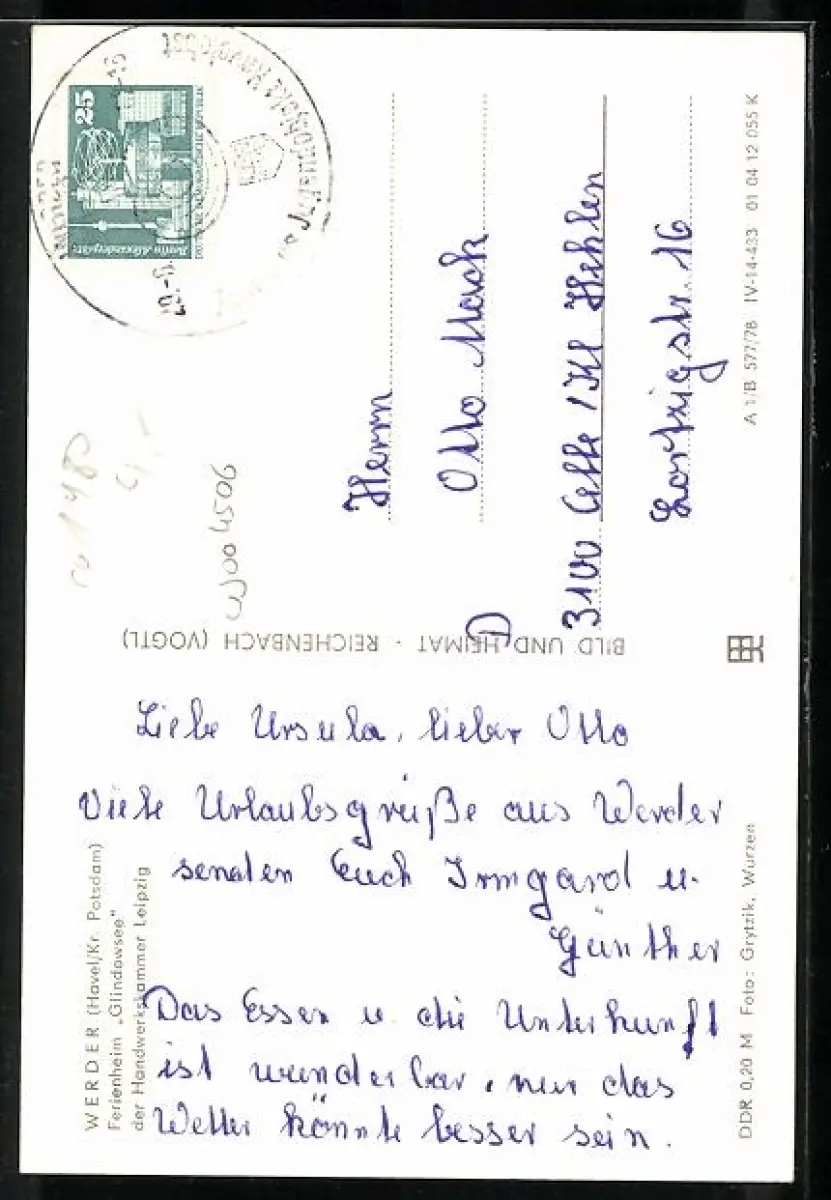 Liebe Ursula, lieber Otto
Viele Urlaubsgrüße aus Werder
senden Euch Irmgard u.
Günther
Das Essen u. die Unterkunft
ist wunderbar, nur das
Wetter könnte besser sein.
WERDER (Havel/Kr. Potsdam)
Ferienheim „Glindowsee"
der Handwerkskammer Leipzig
DDR 0,20 M Foto: Grytzik, Wurzen
BILD UND HEIMAT · REICHENBACH (VOGTL)
Herrn
Otto Mack
D
3100 Celle / Kl Hehlen
Lortzigstr. 16
A 1/B 577/78 IV-14-433 01 04 12 055 K
25
Berlin, Alexanderplatz
Jugendobjekt Havelobst
W004506